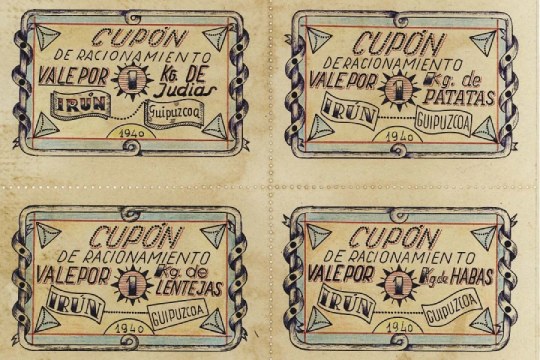 CUPÓN
DE RACIONAMIENTO
VALE POR 1 Kg. DE
Judias
IRÚN Guipuzcoa
1940
CUPÓN
DE RACIONAMIENTO
VALE POR 1 Kg. de
PATATAS
IRÚN GUIPUZCOA
1940
CUPÓN
DE RACIONAMIENTO
VALE POR 1 Kg. de
LENTEJAS
IRÚN GUIPUZCOA
1940
CUPÓN
DE RACIONAMIENTO
VALE POR 1 Kg de HABAS
IRÚN GUIPUZCOA
1940